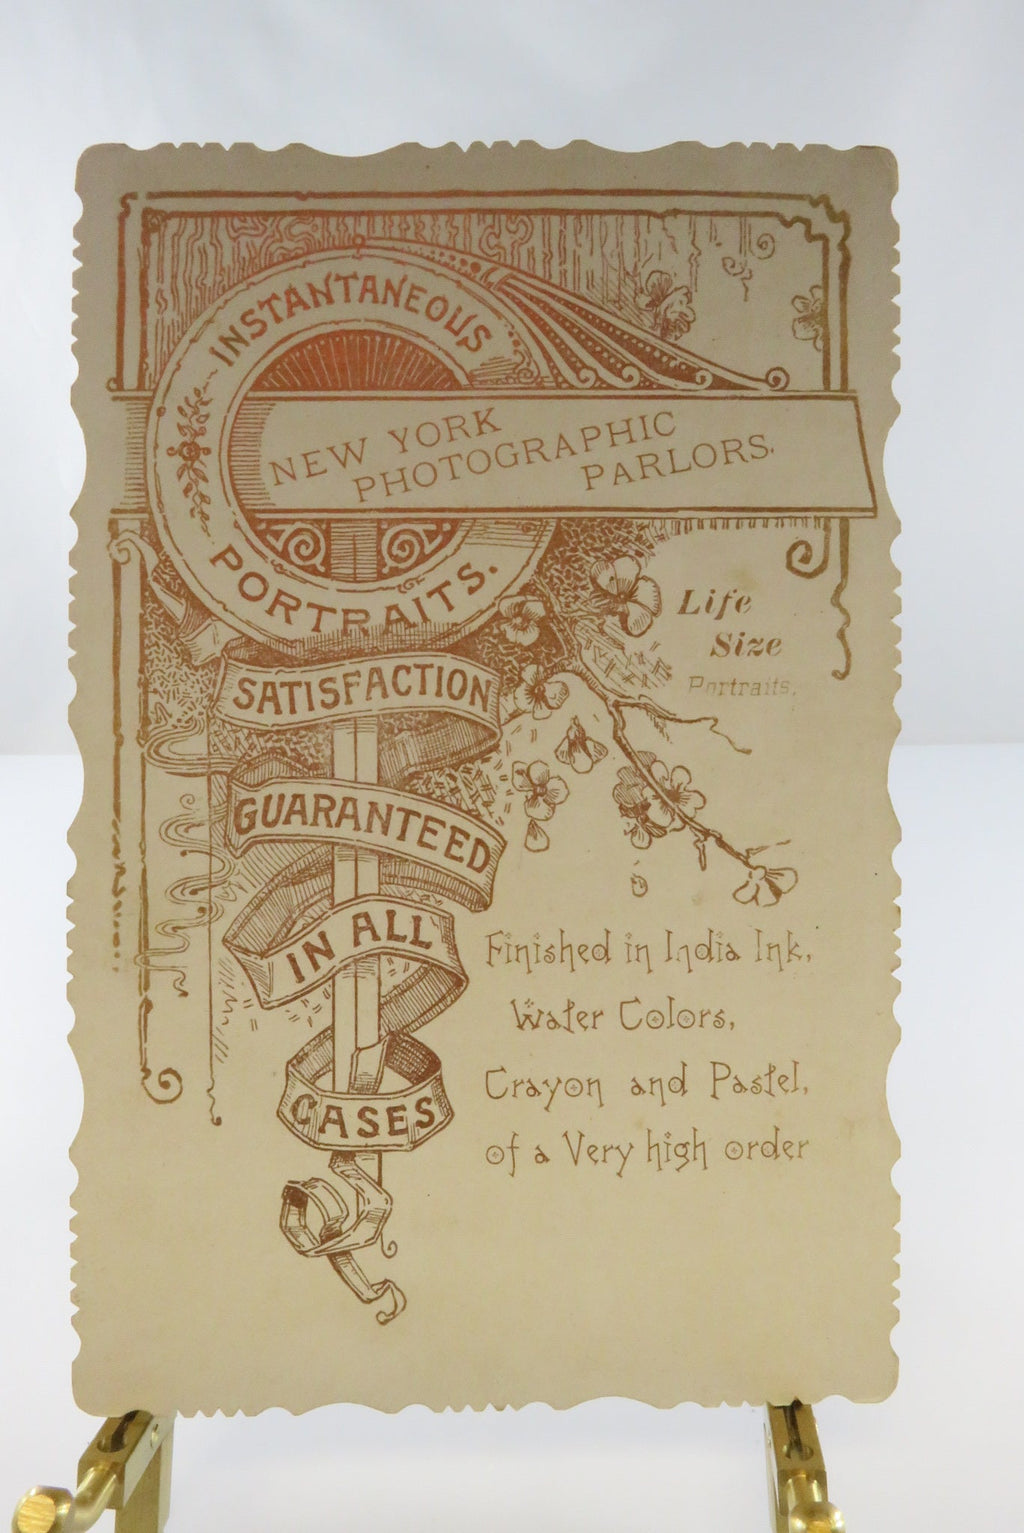 INSTANTANEOUS
NEW YORK
PHOTOGRAPHIC
PARLORS.
PORTRAITS.
Life
Size
Portraits.
SATISFACTION
GUARANTEED
IN ALL
CASES
Finished in India Ink,
Water Colors,
Crayon and Pastel,
of a Very high order